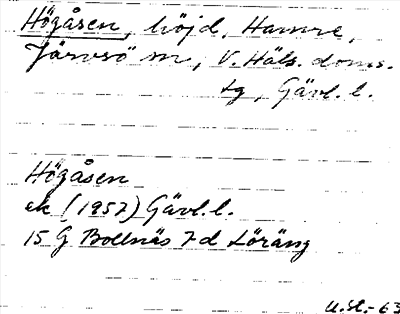 Högåsen, höjd, Hamre,
Järvsö sn, V. Häls. doms.
tg, Gävl. l.
Högåsen
ek (1957) Gävl. l.
15 G Bollnäs 7 d Löräng
U.St.- 63